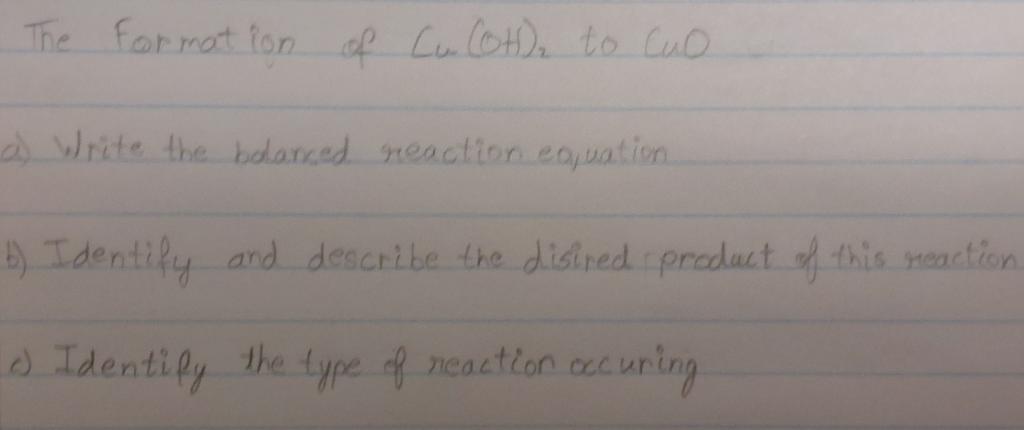 The Formation of Cu(OH)₂ to CuO
a) Write the balanced reaction equation
b) Identify and describe the disired product of this reaction
c) Identify the type of reaction occuring